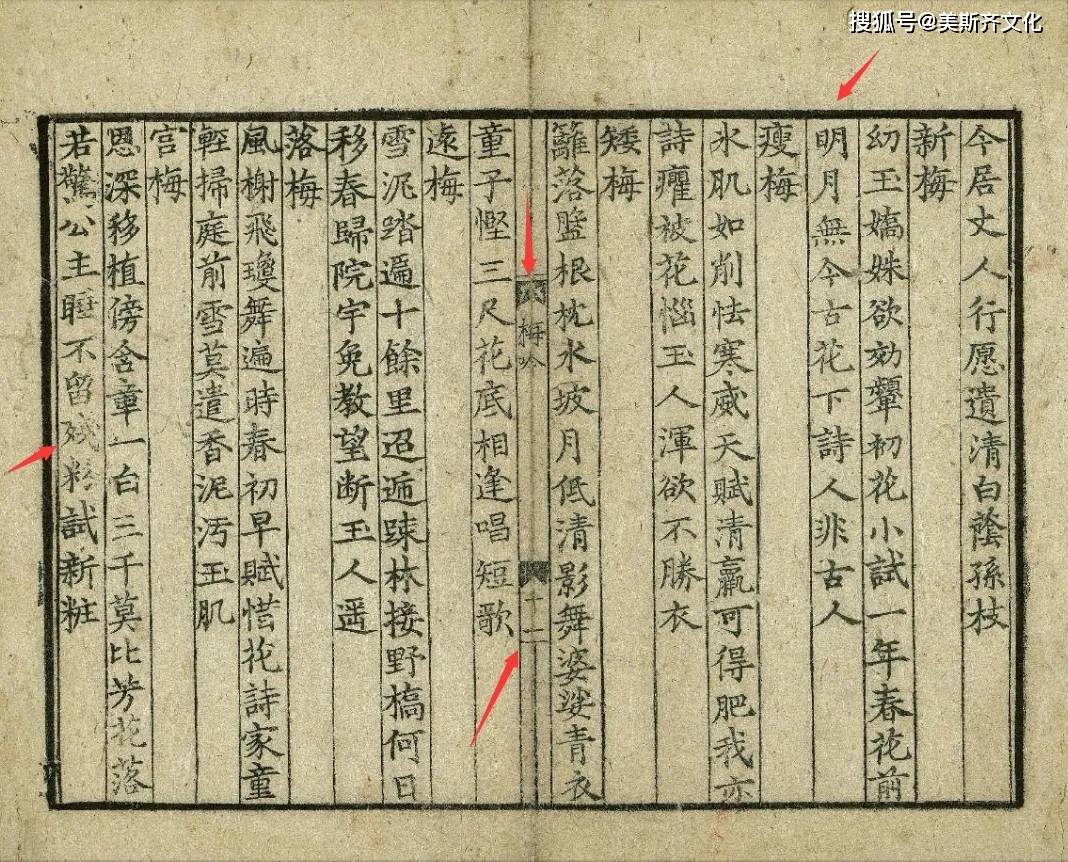 搜狐号@美斯齐文化
今居丈人行愿遺清白蔭孫枝
新梅
幼玉嬌姝欲効顰初花小試一年春花前
明月無今古花下詩人非古人
瘦梅
氷肌如削怯寒威天賦清羸可得肥我亦
詩癯被花惱玉人渾欲不勝衣
矮梅
籬落盤根枕水坡月低清影舞婆娑青衣
梅吟
十二
童子慳三尺花底相逢唱短歌
遠梅
雪泥踏遍十餘里迢逓踈林接野橋何日
移春歸院宇免教望断玉人遥
落梅
風榭飛瓊舞遍時春初早賦惜花詩家童
輕掃庭前雪莫遣香泥汚玉肌
宫梅
恩深移植傍含章一白三千莫比芳花落
若驚公主睡不留残粉試新粧